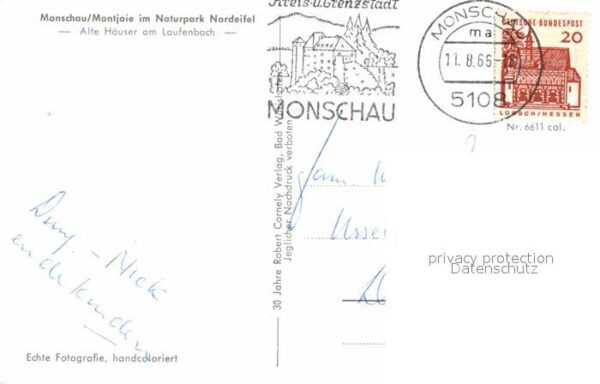 Monschau/Montjoie im Naturpark Nordeifel
— Alte Häuser am Laufenbach —
Kreis u. Grenzstadt
MONSCHAU
MONSCHAU
ma
11.8.66
5108
DEUTSCHE BUNDESPOST
20
LORSCH/HESSEN
Nr. 6611 col.
30 Jahre Robert Cornely Verlag, Bad
Jeglicher Nachdruck verboten
Fam.
privacy protection
Datenschutz
Dmy. - Nick
en de kinderen
Echte Fotografie, handcoloriert